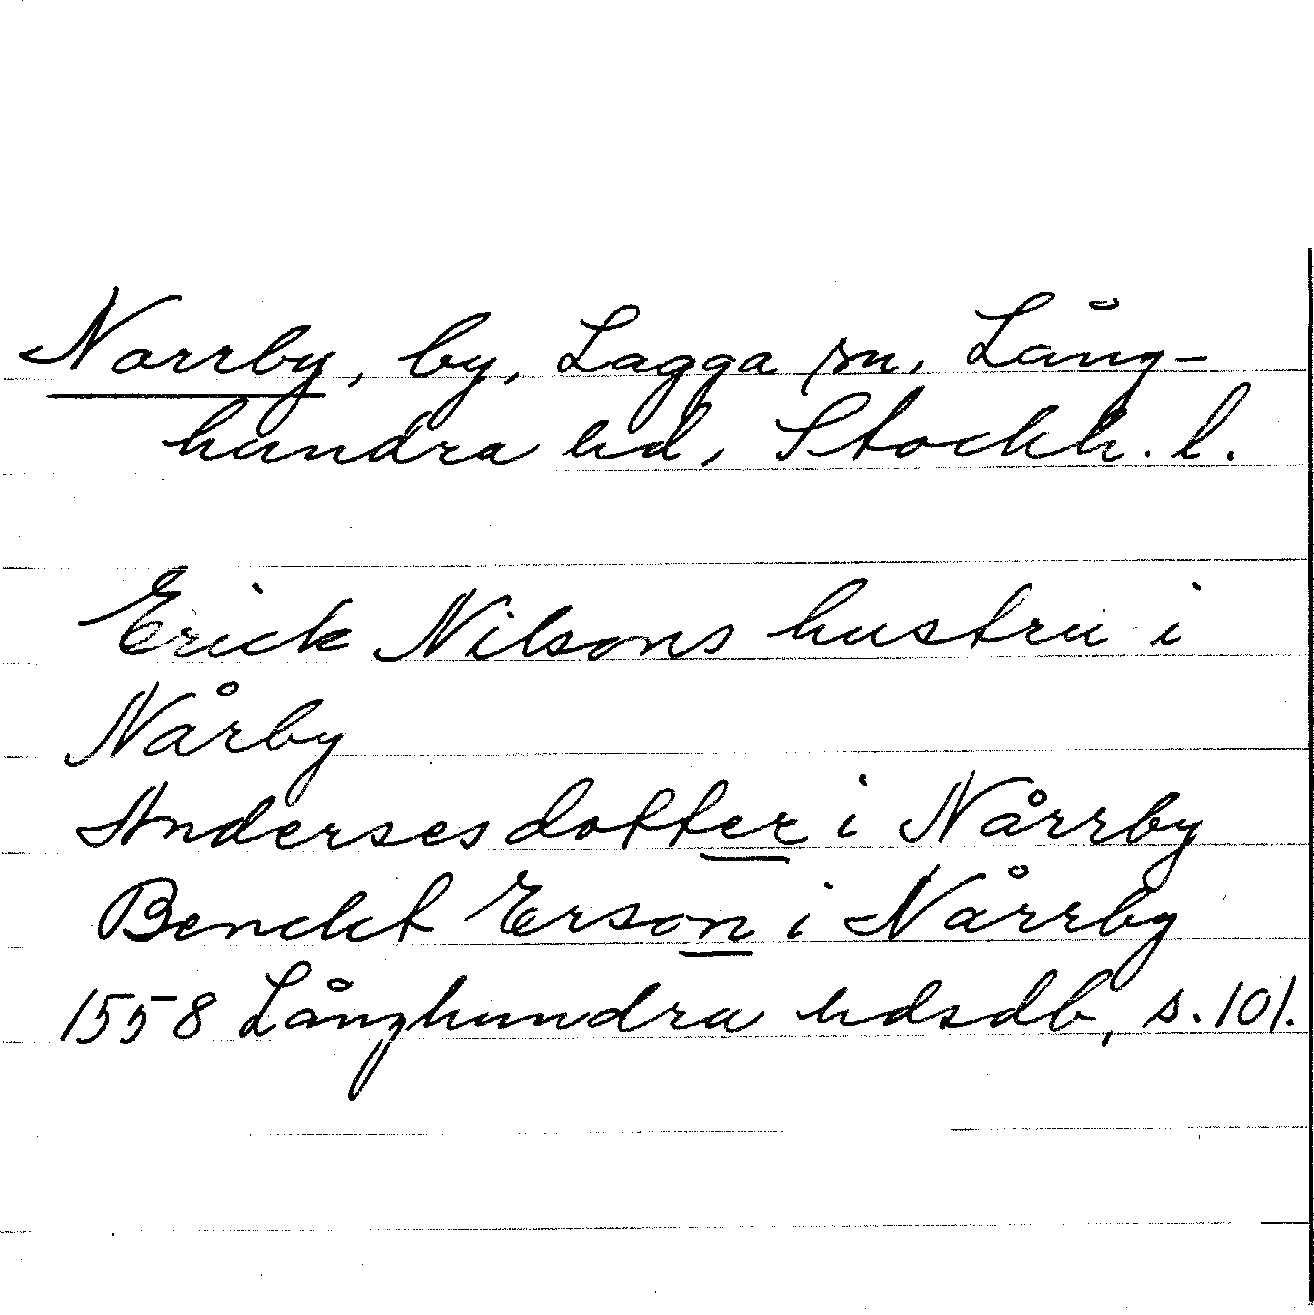 Norrby, by, Lagga sn, Lång-
hundra hd, Stockh. l.
Erick Nilsons hustru i
Nårby
Anderses dotter i Nårrby
Benckt Erson i Nårrby
1558 Långhundra hdsdb, s. 101.